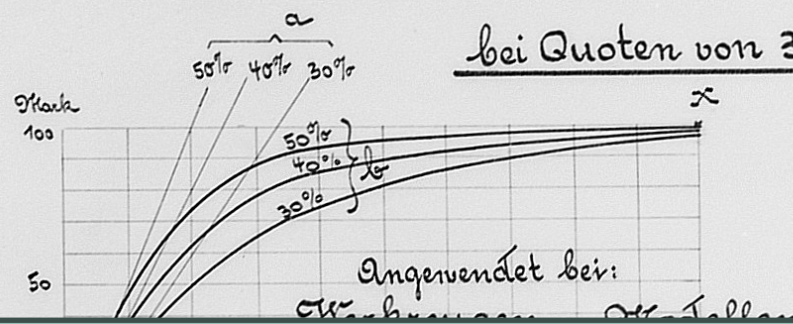 a
bei Quoten von 3
50% 40% 30%
x
Mark
100
50%
40%
b
30%
Angewendet bei:
50